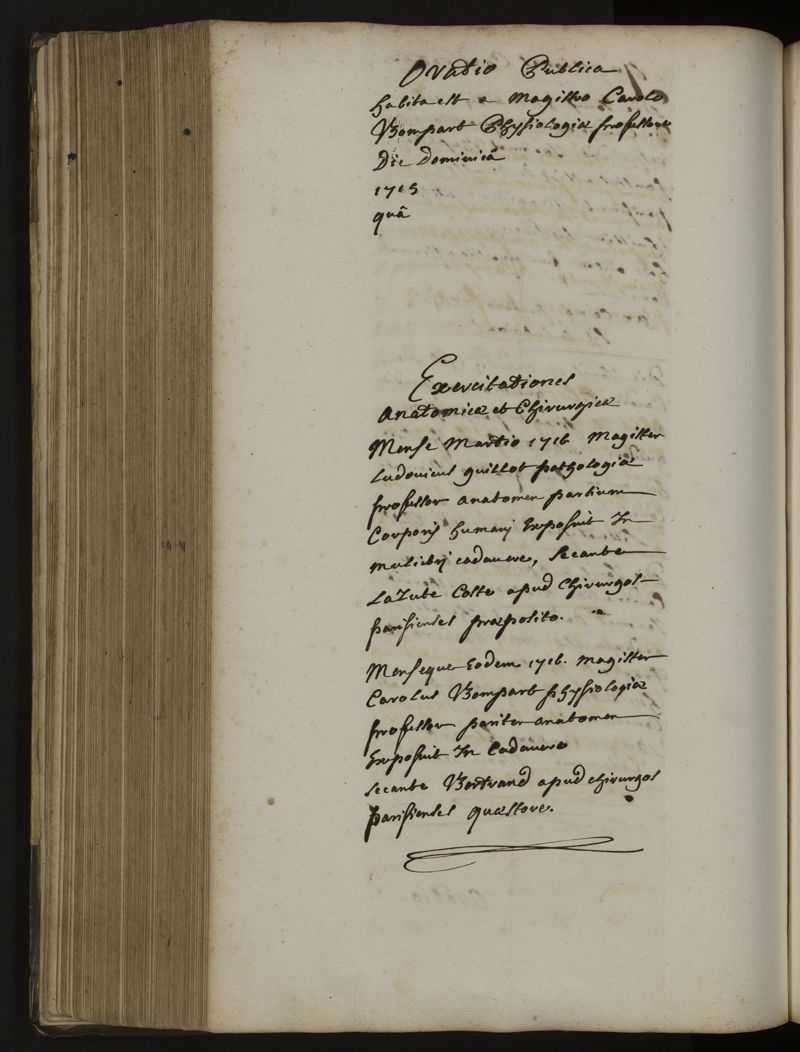 Oratio Publica
habita est a Magistro Carolo
Bompart Physiologiæ professore
Die dominicâ
1715
quâ
Exercitationes
Anatomicæ et Chirurgicæ
Mense Martio 1716 Magister
Ludovicus guillot pathologiæ
professor anatomen partium
Corporis humanj Exposuit In
muliebrj cadavere, secante
Coste apud Chirurgos
parisienses præposito.
Menseque Eodem 1716. magister
Carolus Bompart physiologiæ
professor pariter anatomen
Exposuit In Cadavere
secante Bertrand apud chirurgos
parisienses quæstore.